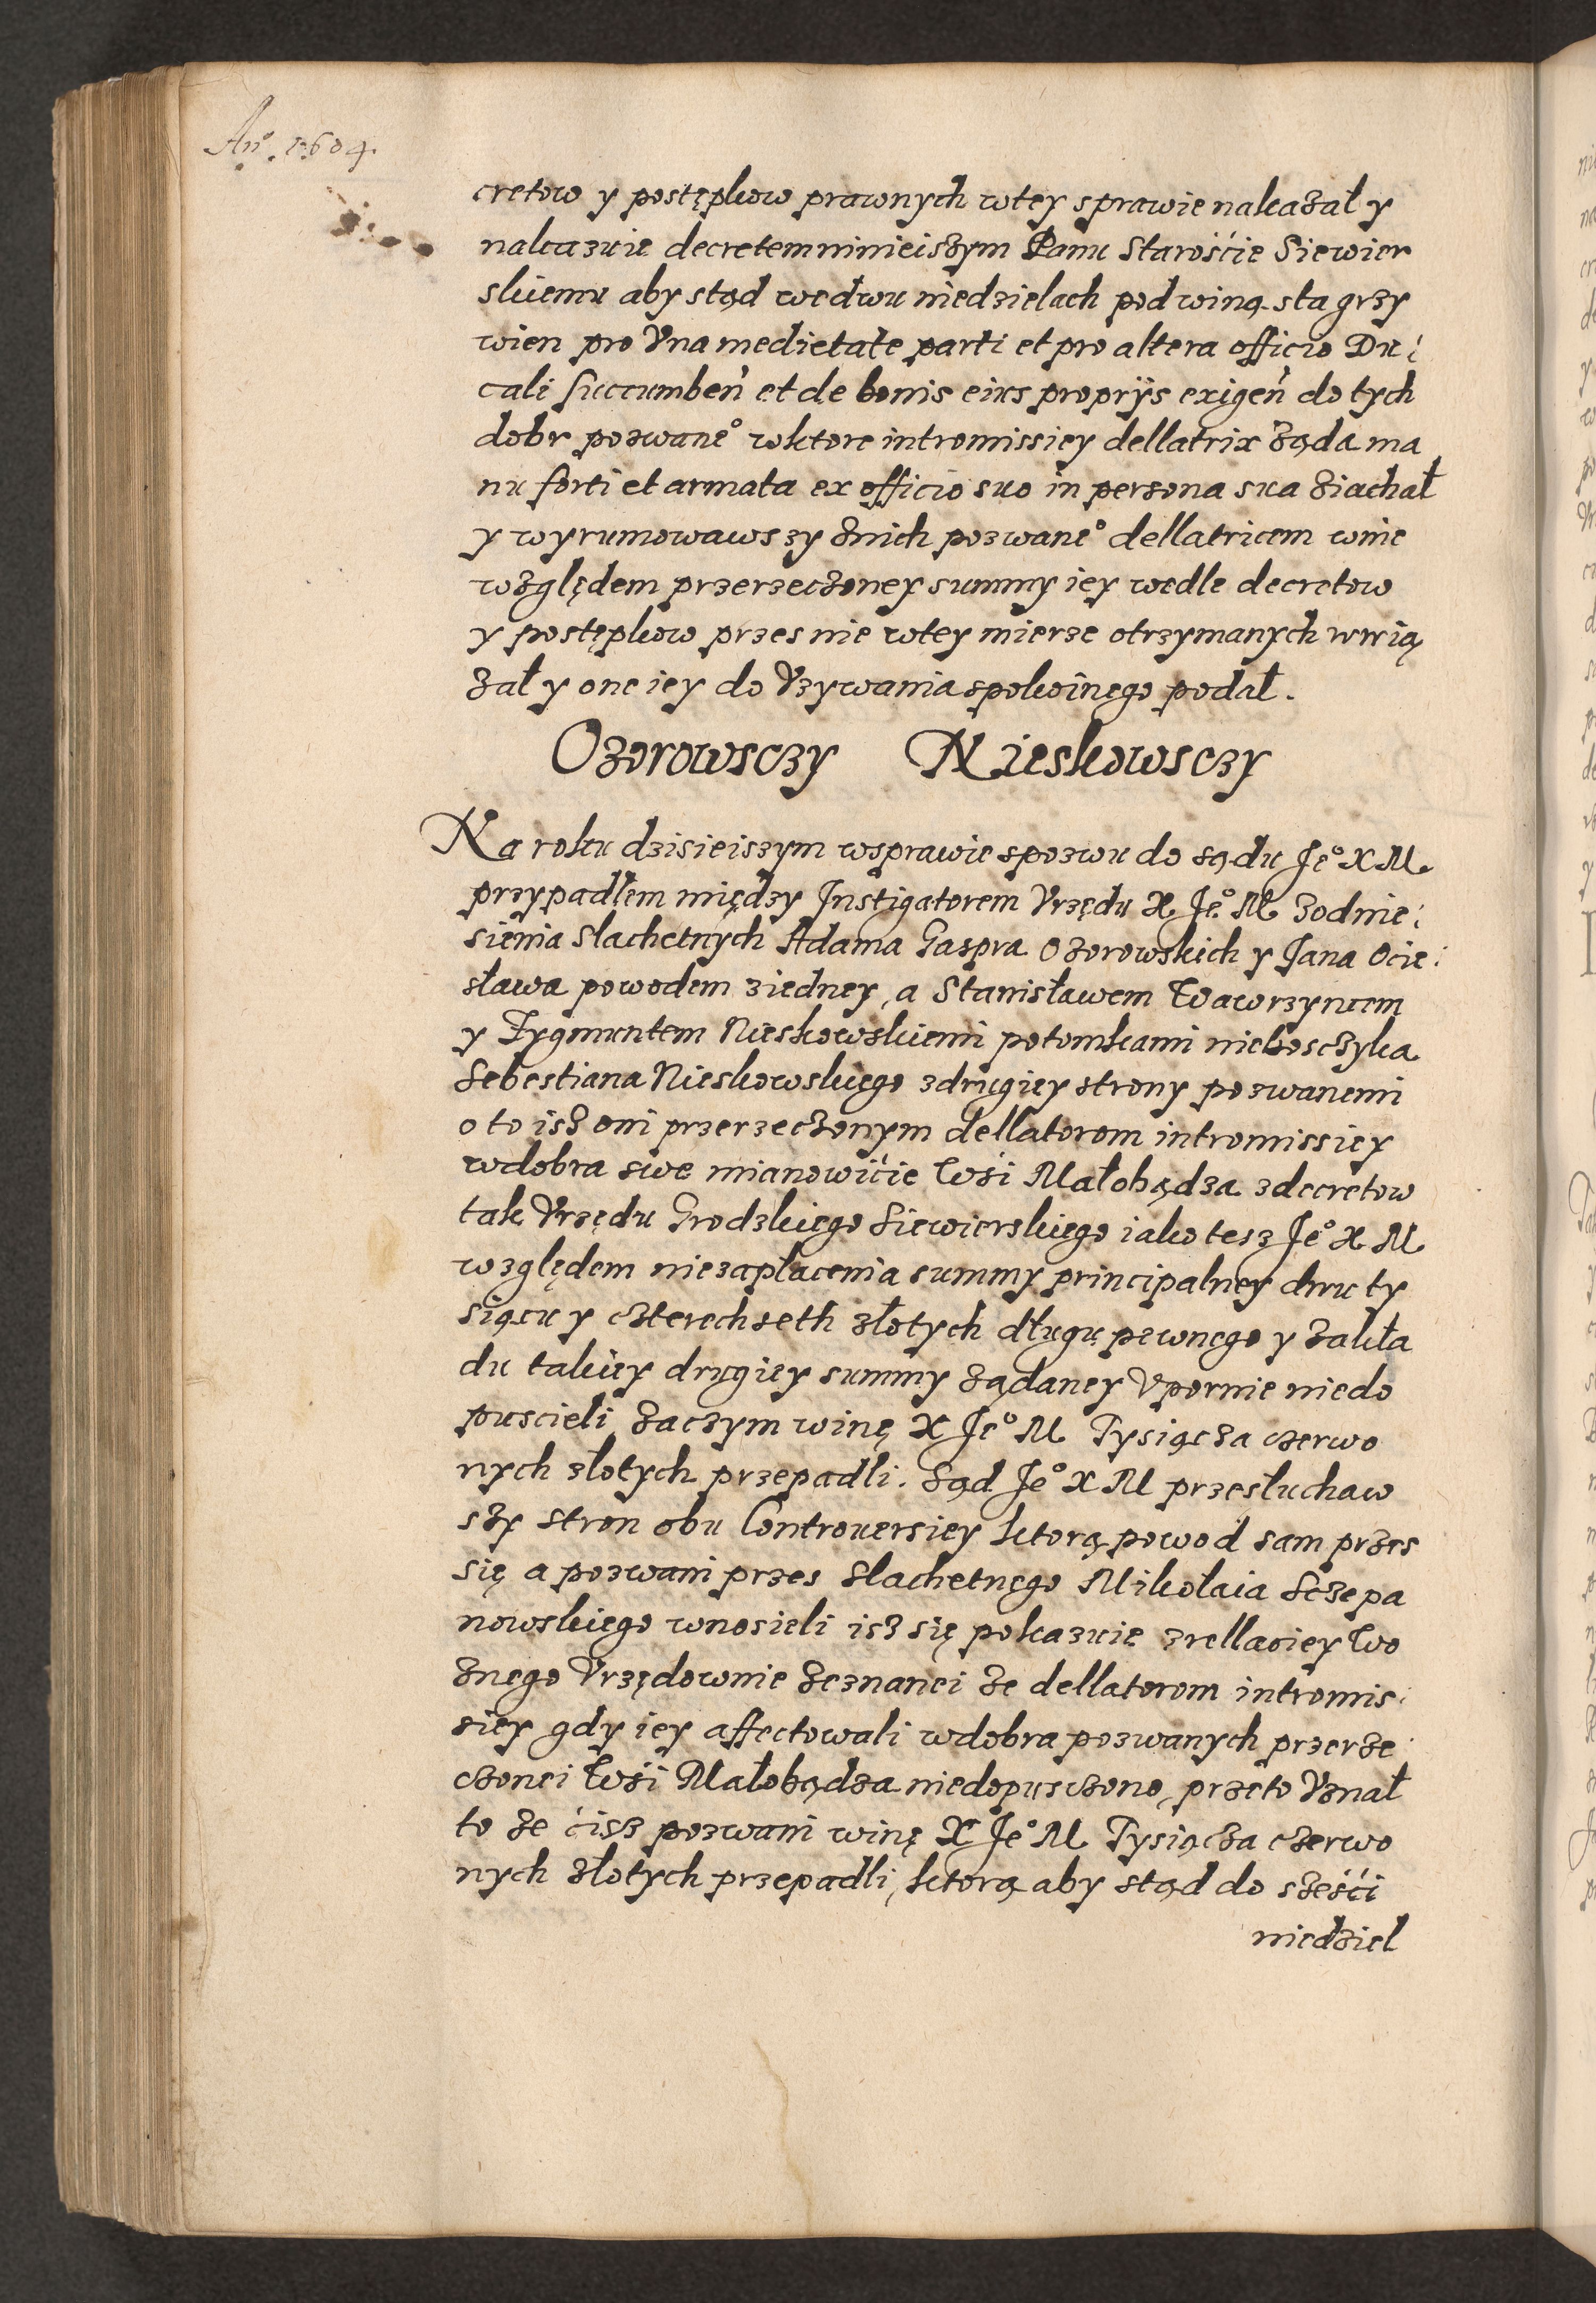 Añº. 1604.
cretow y postępkow prawnych wtey sprawie nakazał y
nakazuie decretem ninieiszym Panu Starośćie Siewier
skiemu aby stąd wedwu niedzielach pod winą sta grzy
wien pro Vna medietate parti et pro altera officio Du:
cali succumbeñ et de bonis eius proprijs exigeñ do tych
dobr pozwaneº wktore intromissiey dellatrix żąda ma
nu forti et armata ex officio suo in persona sua ziachał
y wyrumowawszy znich pozwaneº dellatricem wnie
względem przerzeczoney summy iey wedle decretow
y postępkow przes nie wtey mierze otrzymanych wwią
zał y one iey do Vzywania spokoinego podał.
Ozorowsczy Nieskowsczy
Na roku dzisieiszym wsprawie spozwu do sądu Jeº X M
przypadłem między Instigatorem Vrzędu X Jeº M zodnie:
sienia Slachetnych Adama Gaspra Ozorowskich y Jana Ocie:
sława powodem ziedney, a Stanisławem Wawrzyncem
y Zygmuntem Nieskowskiemi potomkami nieboszczyka
Sebestiana Nieskowskiego zdrugiey strony pozwanemi
o to isz oni przerzeczonym dellatorom intromissiey
wdobra swe mianowićie Wsi Małobądza zdecretow
tak Vrzędu Grodzkiego Siewierskiego iako tesz Jeº X M
względem niezapłacenia summy principalney dwu ty
siącu y czterechseth złotych długu pewnego y zakła
du takiey drugiey summy żądaney Vpornie niedo
puscieli zaczym winę X Jeº M Tysiącza czerwo
nych złotych przepadli. Sąd Jeº X M przesłuchaw
szy stron obu Controuersiey ktorą powod sam przes
się a pozwani przes Slachetnego Mikołaia Sczepa
nowskiego wnosieli isz się pokazuie zrellaciey Wo
znego Vrzędownie zeznanei że dellatorom intromis:
siey gdy iey affectowali wdobra pozwanych przerze
czonei Wsi Małobądza niedopusczono, przeto Vznał
to że ćisz pozwani winę X Jeº M Tysiącza czerwo
nych złotych przepadli, ktorą aby stąd do sześći
niedziel